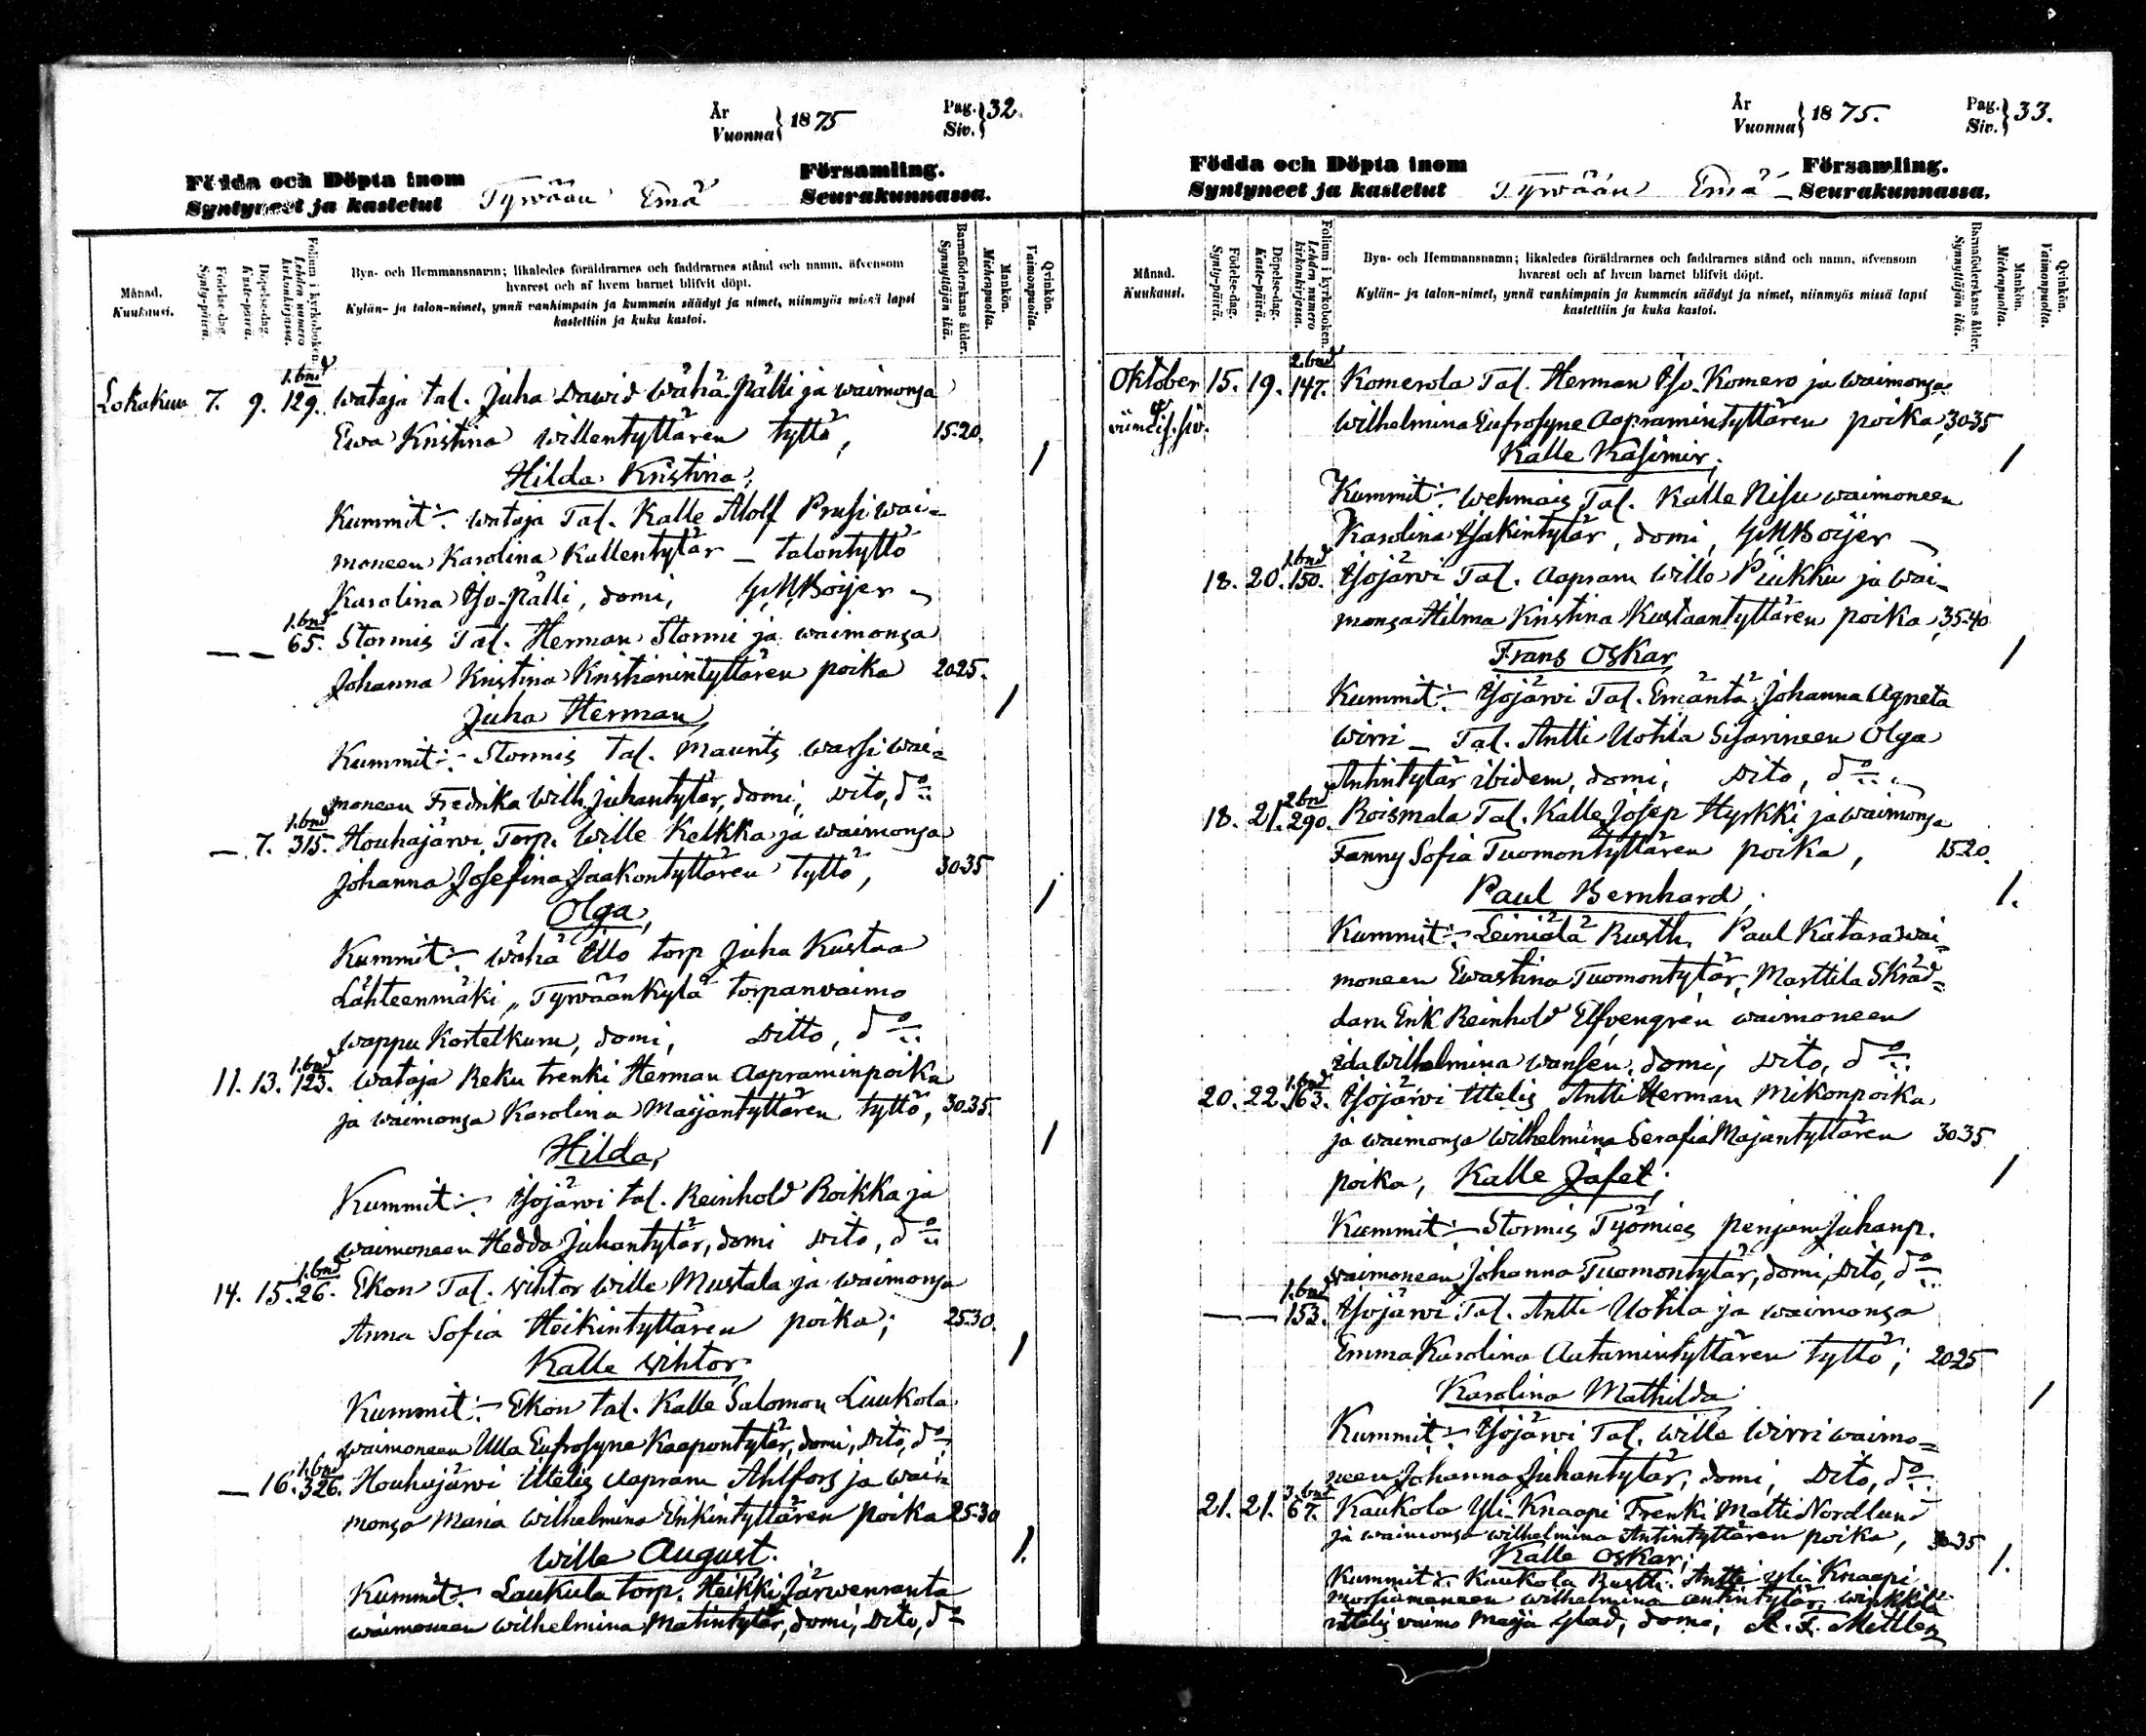 År
Vuonna } 1875
Pag.
Siv. } 32.
Födda och Döpta inom
Syntyneet ja kastetut
Tyrwään Emä
Församling.
Seurakunnassa.
Månad.
Kuukausi.
Födelse-dag.
Synty-päivä.
Döpelse-dag.
Kaste-päivä.
Folium i kyrkoboken.
Lehden numero kirkonkirjassa.
Bya- och Hemmansnamn; likaledes föräldrarnes och faddrarnes stånd och namn, äfvensom
hvarest och af hvem barnet blifvit döpt.
Kylän- ja talon-nimet, ynnä vanhimpain ja kummein säädyt ja nimet, niinmyös missä lapsi
kastettiin ja kuka kastoi.
Barnaföderskans ålder.
Synnyttäjän ikä.
Mankön.
Miehenpuolta.
Qvinkön.
Vaimonpuolta.
1.bnd
Lokakuu 7. 9. 129. wataja tal. Juha Dawid Wähä-Pälli ja waimonsa
Ewa Kristina Willentyttären tyttö, 15-20.
Hilda Kristina; /
Kummit:- wataja Tal. Kalle Adolf Prusi wai-
moneen Karolina Kallentytär – talontyttö
Karolina Iso-Pälli, domi, G.M.Boijer
1.bnd
— — 65. Stormis Tal. Herman Stormi ja waimonsa
Johanna Kristina Kristianintyttären poika 20-25.
Juha Herman, /
Kummit:- Stormis tal. Maunts warsi wai-
moneen Fredrika Wilh. Juhantytär, domi, Dito, do
1.bnd
— 7. 315. Houhajärvi Torp. Wille Kelkka ja waimonsa
Johanna Josefina Jaakontyttären tyttö, 30-35
Olga, /
Kummit:- Wähä Illo torp Juha Kustaa
Lähteenmäki, Tyrwäänkylä torpanvaimo
Wappu Kortelkuru, domi, Ditto, do
1.bnd
11. 13. 123. wataja Reku trenki Herman Aapraminpoika
ja waimonsa Karolina Maijantyttären tyttö, 30-35.
Hilda, /
Kummit:- Isojärvi tal. Reinhold Roikka ja
waimoneen Hedda Juhantytär, domi Dito, do
1.bnd
14. 15. 26. Ekon Tal. Wihtor Wille Mustala ja waimonsa
Anna Sofia Heikintyttären poika; 25-30.
Kalle Wihtor, /
Kummit:- Ekon tal. Kalle Salomon Liukola
waimoneen Ulla Eufrosyne Kaapontytär, domi, Dito, do
1.bnd
— 16. 326. Houhajärvi Ittelis Aapram Ahlfors ja wai-
monsa Maria Wilhelmina Erikintyttären poika 25-30
Wille August. /.
Kummit:- Laukula torp. Heikki Järwenranta
waimoneen Wilhelmina Matintytär, domi, Dito, do
År
Vuonna } 1875.
Pag.
Siv. } 33.
Födda och Döpta inom
Syntyneet ja kastetut
Tyrwään Emä –
Församling.
Seurakunnassa.
Månad.
Kuukausi.
Födelse-dag.
Synty-päivä.
Döpelse-dag.
Kaste-päivä.
Folium i kyrkoboken.
Lehden numero kirkonkirjassa.
Bya- och Hemmansnamn; likaledes föräldrarnes och faddrarnes stånd och namn, äfvensom
hvarest och af hvem barnet blifvit döpt.
Kylän- ja talon-nimet, ynnä vanhimpain ja kummein säädyt ja nimet, niinmyös missä lapsi
kastettiin ja kuka kastoi.
Barnaföderskans ålder.
Synnyttäjän ikä.
Mankön.
Miehenpuolta.
Qvinkön.
Vaimonpuolta.
2.bnd
Oktober 15. 19. 147. Komerola Tal. Herman Iso-Komero ja waimonsa
Wilhelmina Eufrosyne Aapramintyttären poika, 30-35
Kalle Kasimir. /
Kummit:- Wehmais Tal. Kalle Nisu waimoneen
Karolina Isakintytär, domi, G.M.Boijer
1.bnd
18. 20. 150. Isojärvi Tal. Aapram Wille Piukku ja wai-
monsa Hilma Kristina Kustaantyttären poika, 35-40
Frans Oskar /
Kummit:- Isojärvi Tal. Emäntä Johanna Agneta
Wirri – Tal. Antti Uotila Sisarineen Olga
Antintytär ibidem, domi, Dito, do
2.bnd
18. 21. 290. Roismala Tal. Kalle Josep Hyrkki ja waimonsa
Fanny Sofia Tuomontyttären poika, 15-20.
Paul Bernhard; /.
Kummit:- Leiniälä Rusth. Paul Katara wai-
moneen Ewastina Tuomontytär, Marttila Skräd-
daru Erik Reinhold Elfvengrén waimoneen
Ida Wilhelmina Wansén, domi, Dito, do
1.bnd
20. 22. 163. Isojärvi Ittelis Antti Herman Mikonpoika
ja waimonsa Wilhelmina Serafia Majantyttären 30-35
poika, Kalle Jafet; /
Kummit:- Stormis Työmies Penjam Juhanp.
waimoneen Johanna Tuomontytär, domi, Dito, do
1.bnd
— — 153. Isojärvi Tal. Antti Uotila ja waimonsa
Emma Karolina Aatamintyttären tyttö; 20-25
Karolina Mathilda /
Kummit:- Isojärvi Tal. Wille Wirri waimo-
neen Johanna Juhantytär, domi, Dito, do
3.bnd
21. 21. 67. Kaukola Yli-Knaapi Trenki Matti Nordlund
ja waimonsa Wilhelmina Antintyttären poika, 30-35
Kalle Oskar; /.
Kummit:- Kaukola Rustti. Antti Yli Knaapi
Wilhelmina Antintytär,
Ittelis vaimo Maija Glad, domi, A. F. Mittler